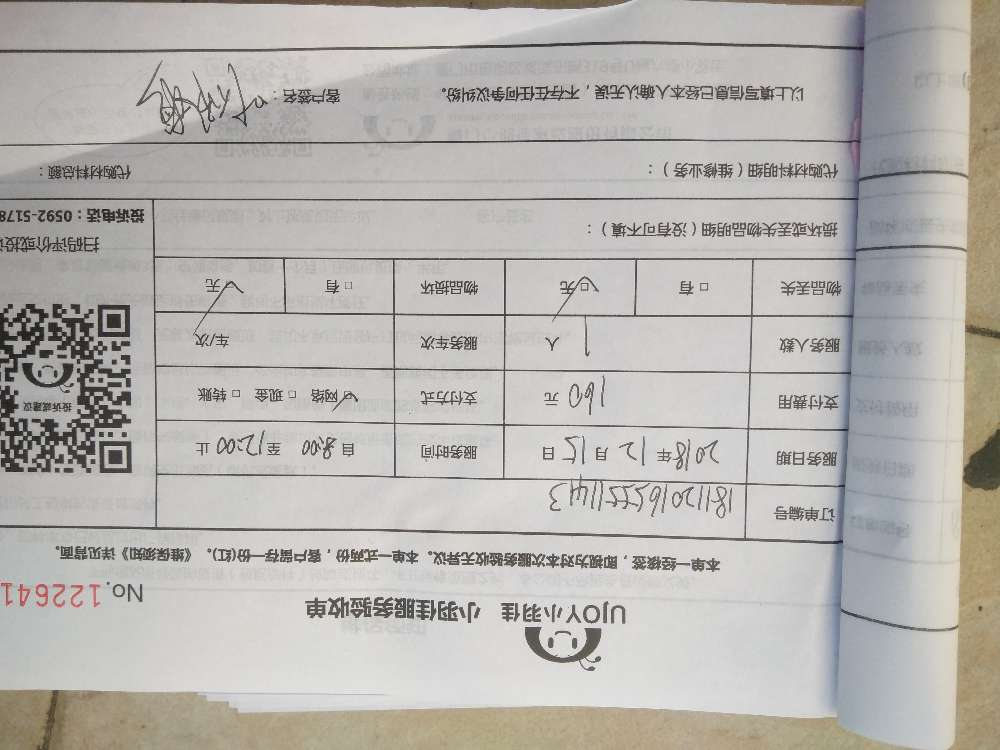 UJOY小羽佳 小羽佳服务验收单
No. 122641
本单一经核签，即视为对本次服务验收无异议。本单一式两份，客户留存一份(红)。《维保须知》详见背面。
订单编号 181120165551143
服务日期 2018年12月15日 服务时间 自8:00至12:00止
支付费用 160元 支付方式 □网络 □现金 □转账
服务人数 1人 服务车次 车/次
物品丢失 □有 □无 物品损坏 □有 □无
投诉或建议
损坏或丢失物品明细（没有可不填）：
扫码评价或投
投诉电话：0592-5178
代购材料明细（维修业务）：
代购材料总额：
以上填写信息已经本人确认无误，不存在任何争议纠纷。
客户签名：